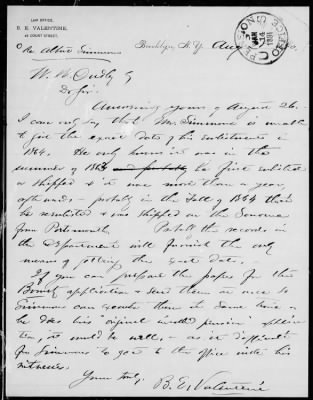 LAW OFFICE,
B. E. VALENTINE,
COURT STREET,
Brooklyn, N.Y. Aug
PENSION OFFICE
U.S.
JAN
14
1891
Re Albert Simmons
W. H.
Dr Sir:
Answering yours of August 26.—
I can only say that Mr. Simmons is unable
to give the exact date of his enlistments in
1864. He only knows it was in the
summer of 1863 and probably he first enlisted
or shipped & it was more than a year
afterwards — probably in the Fall of 1864 that
he reenlisted & was shipped on the Sonoma
from Portsmouth. the records in
the Department will furnish the only
means of getting the exact date.—
If you can prepare the papers for this
Bounty application & send them on once so
Simmons can execute them at same time as
he does his "original invalid pension" applica-
tion, it would be well,— as it is difficult
for Simmons to go to the office with his
witnesses.
Yours truly,
B. E. Valentine